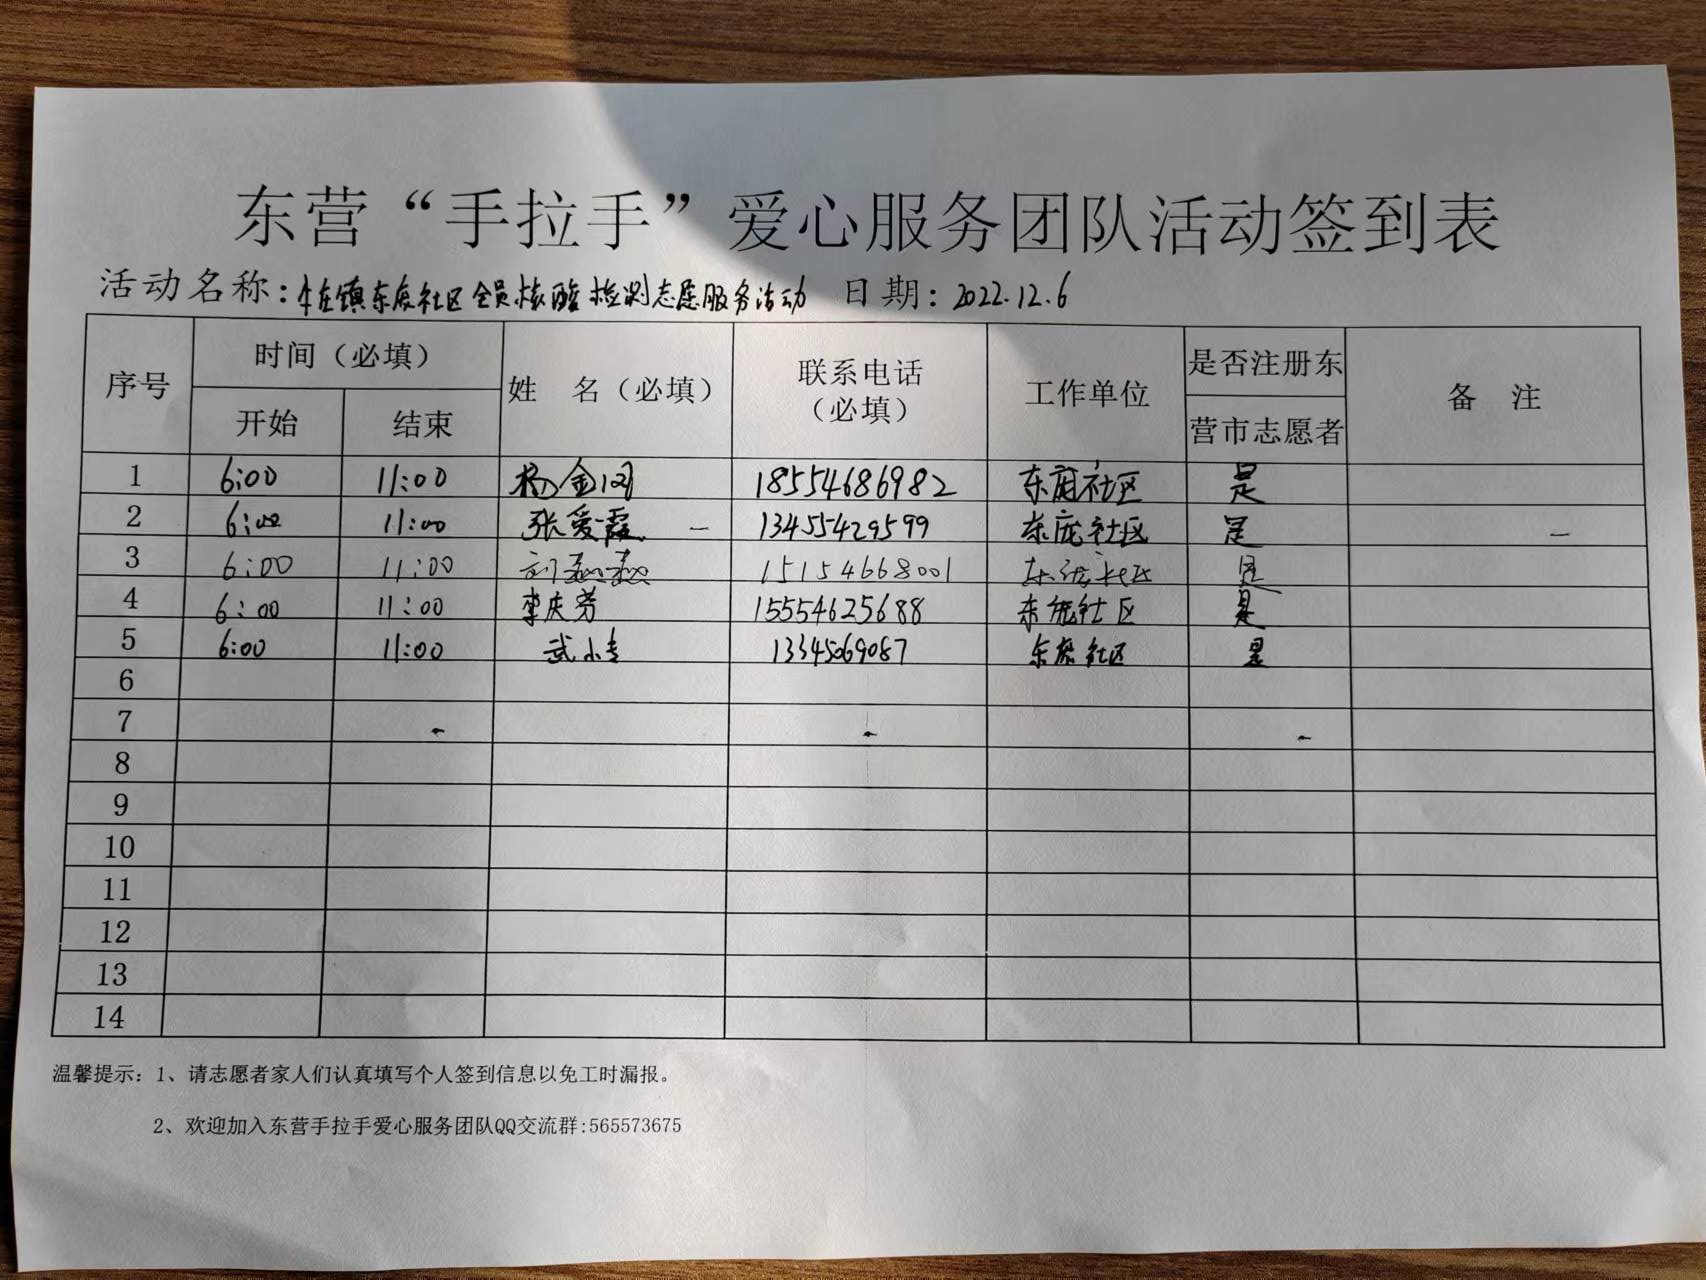 东营“手拉手”爱心服务团队活动签到表
活动名称：牛庄镇东庞社区全员核酸检测志愿服务活动 日期：2022.12.6
序号 时间（必填） 姓 名（必填） 联系电话（必填） 工作单位 是否注册东营市志愿者 备 注
开始 结束
1 6:00 11:00 杨金 18554686982 东庞社区 是
2 6:00 11:00 张爱霞 13455429599 东庞社区 是
3 6:00 11:00 刘 15154668001 东庞社区 是
4 6:00 11:00 李庆芳 15554625688 东庞社区 是
5 6:00 11:00 武小 13345069087 东庞社区 是
6
7
8
9
10
11
12
13
14
温馨提示：1、请志愿者家人们认真填写个人签到信息以免工时漏报。
2、欢迎加入东营手拉手爱心服务团队QQ交流群:565573675